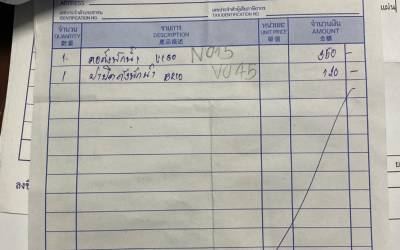 ADDRESS
เลขประจำตัวประชาชน IDENTIFICATION NO. เลขประจำตัวผู้เสียภาษีอากร TAX IDENTIFICATION NO.
จำนวน รายการ หน่วยละ จำนวนเงิน
QUANTITY DESCRIPTION UNIT PRICE AMOUNT
數量 產品描述 單價 金額
1. คอถังพักน้ำ VIGO N015 350 -
1 ฝาปิดถังพักน้ำ VU45 120 -